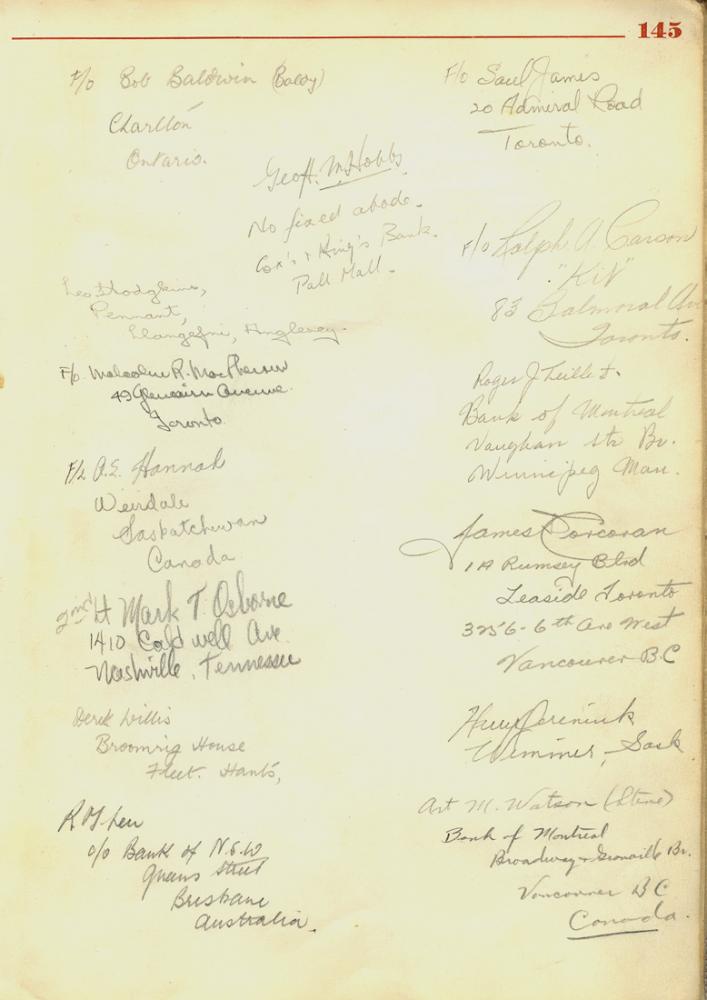 145
F/o Bob Baldwin (Baldy)
Charlton
Ontario.
Geoff. M. Hobbs.
No fixed abode.
Cox's & King's Bank.
Pall Mall.
Pennant,
Llangefni, Anglesey.
F/o. Malcolm R. MacPherson
49 Glencairn Avenue.
Toronto
F/L A.E. Hannah
Weirdale
Saskatchewan
Canada
2nd Lt Mark T. Osborne
1410 Caldwell Ave
Nashville, Tennessee
Derek Willis
Broomrig House
Fleet. Hants,
c/o Bank of N.S.W
Queens Street
Brisbane
Australia.
F/o Saul James
20 Admiral Road
Toronto.
F/o Ralph A. Carson
"Kit"
83 Balmoral Ave
Toronto.
Roger J Teillet.
Bank of Montreal
Vaughan Str Br.
Winnipeg Man.
James Corcoran
1A Rumsey Blvd
Leaside Toronto
3256-6th Ave West
Vancouver B.C
Wimmer, Sask
Art M. Watson
Bank of Montreal
Broadway & Granville Br.
Vancouver B C
Canada.